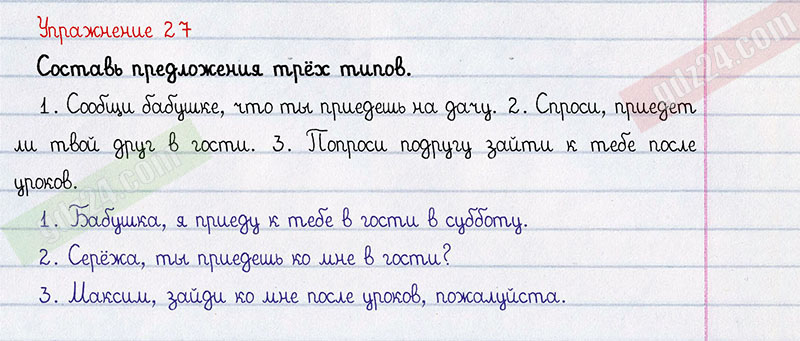 Упражнение 27
Составь предложения трёх типов.
1. Сообщи бабушке, что ты приедешь на дачу. 2. Спроси, приедет
ли твой друг в гости. 3. Попроси подругу зайти к тебе после
уроков.
1. Бабушка, я приеду к тебе в гости в субботу.
2. Серёжа, ты приедешь ко мне в гости?
3. Максим, зайди ко мне после уроков, пожалуйста.
gdz24.com
gdz24.com